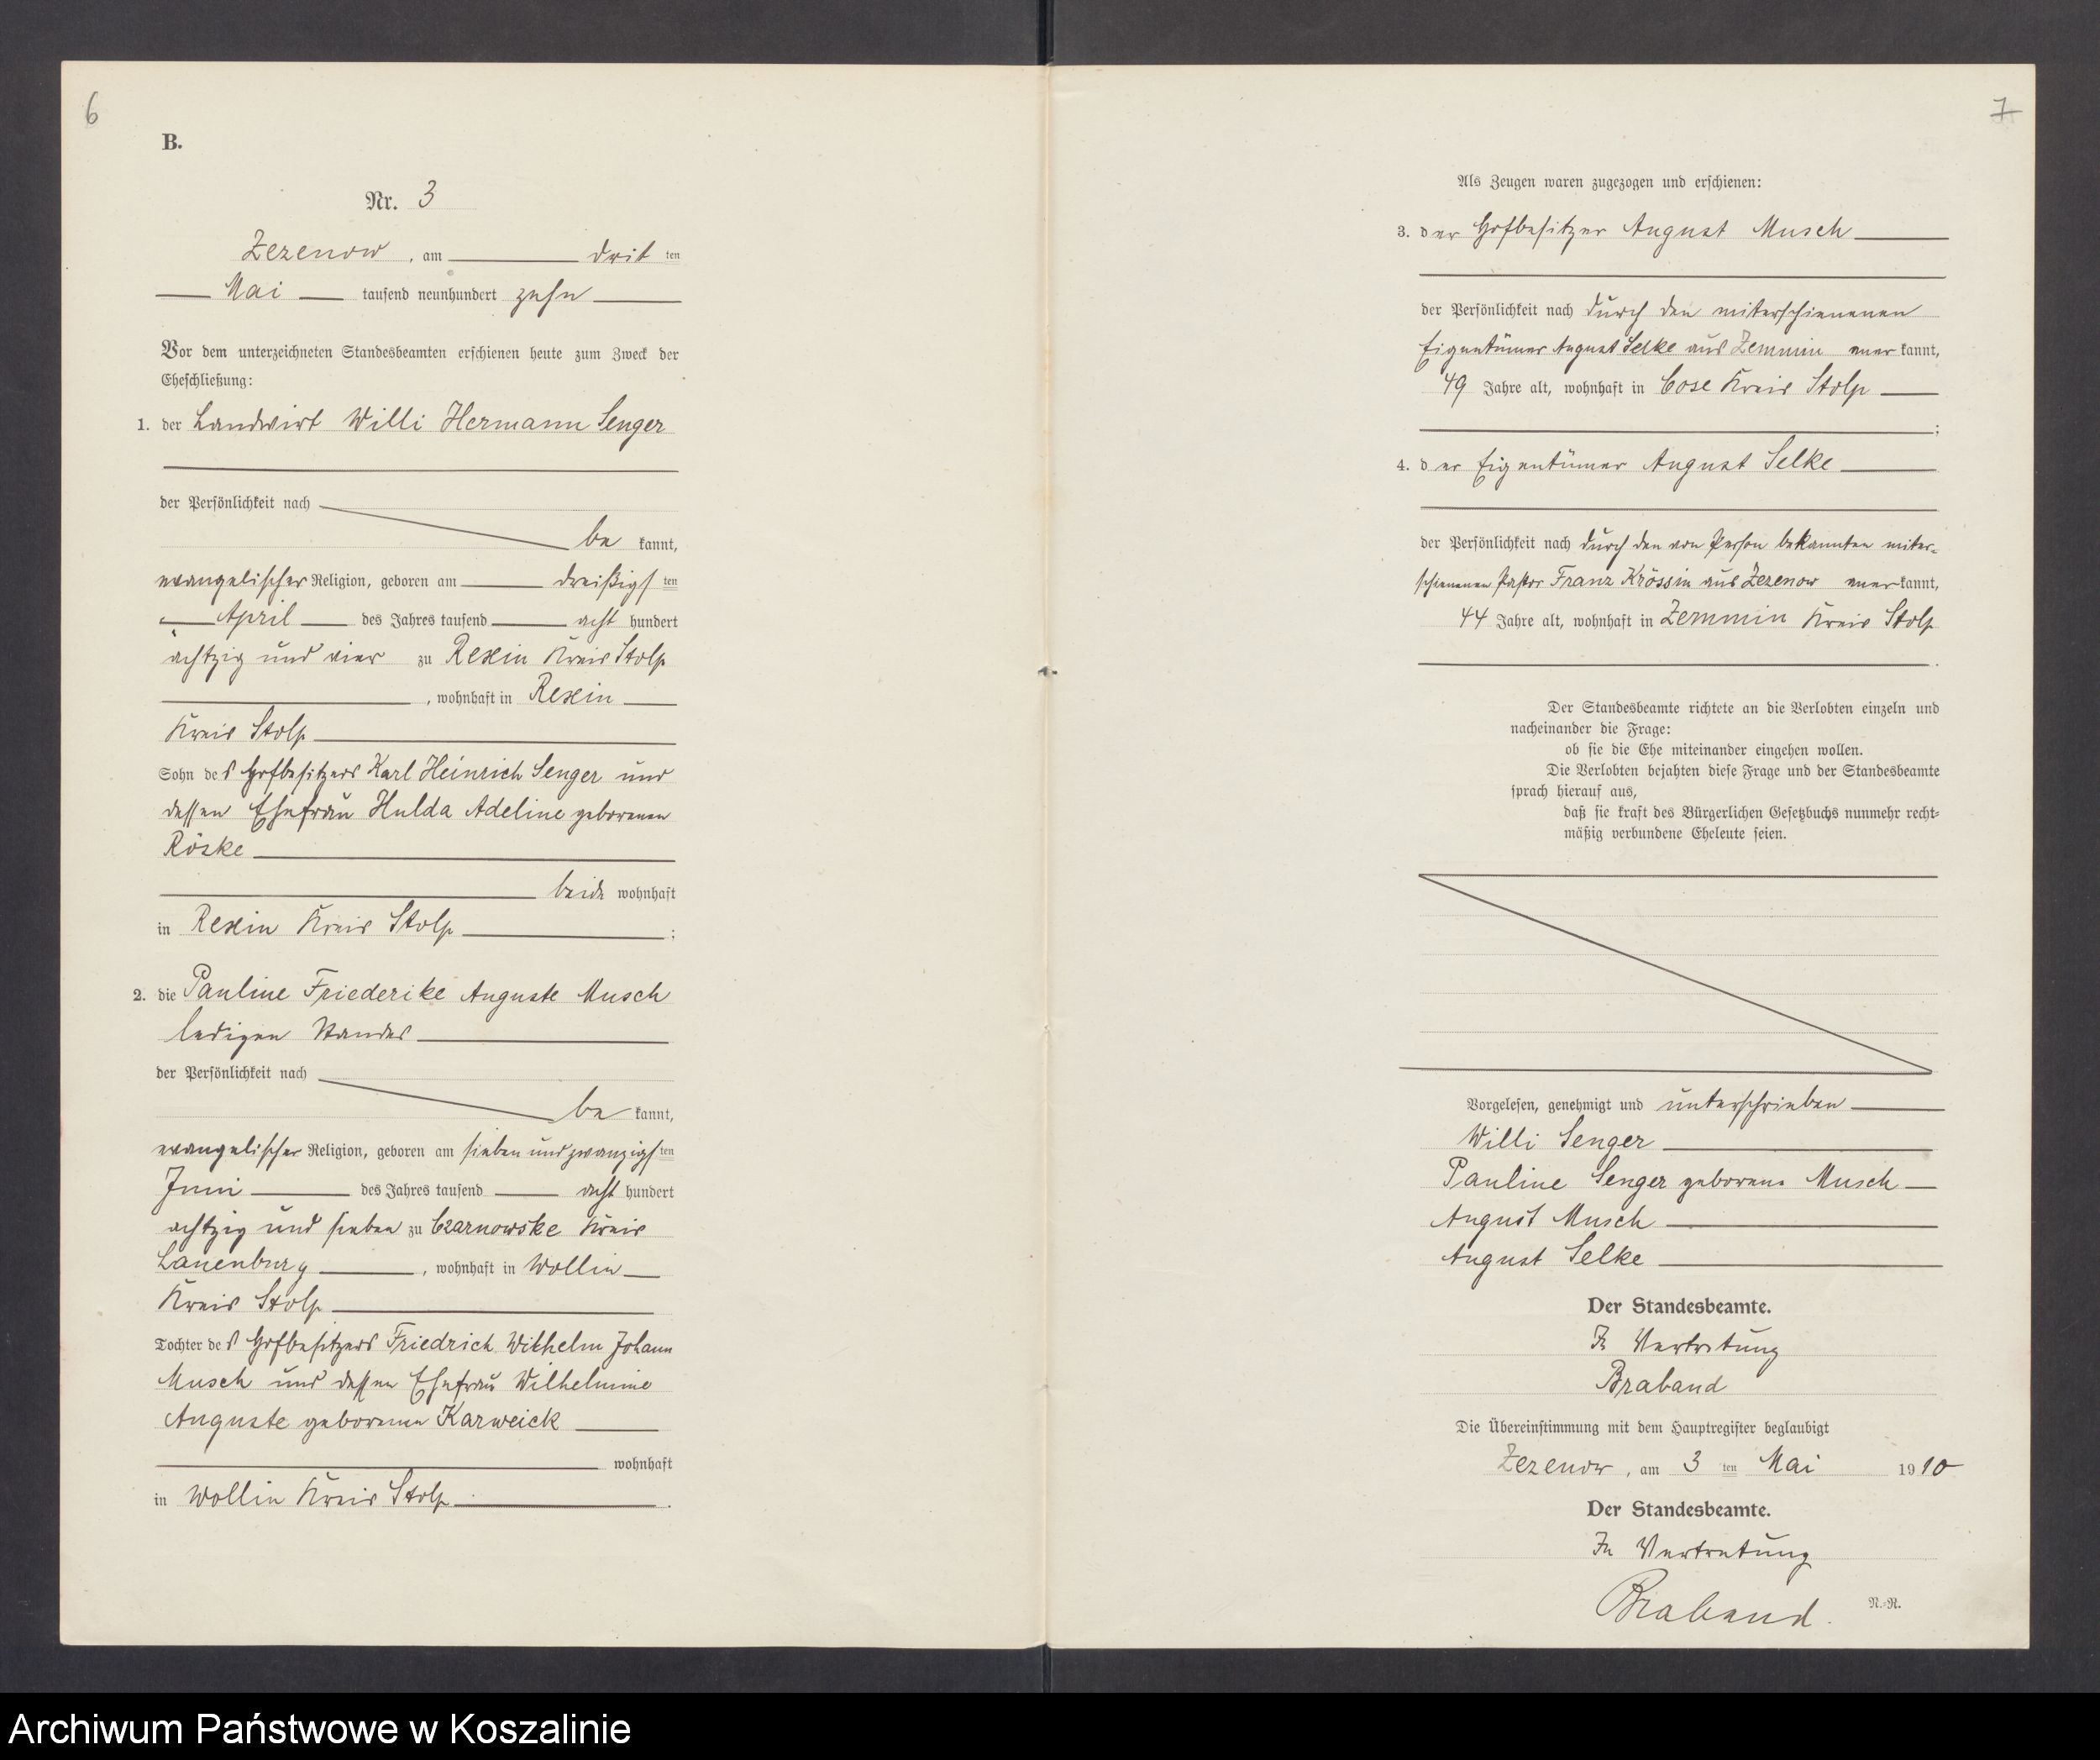 6
B.
Nr. 3
Zezenow, am dritten
Mai tausend neunhundert zehn
Vor dem unterzeichneten Standesbeamten erschienen heute zum Zweck der
Eheschließung:
1. der Landwirt Willi Hermann Senger
der Persönlichkeit nach
bekannt,
evangelischer Religion, geboren am dreißigsten
April des Jahres tausend acht hundert
achtzig und vier zu Rexin Kreis Stolp
, wohnhaft in Rexin
Kreis Stolp
Sohn des Hofbesitzers Karl Heinrich Senger und
dessen Ehefrau Hulda Adeline geborenen
Röske
beide wohnhaft
in Rexin Kreis Stolp ;
2. die Pauline Friederike Auguste Musch
ledigen Standes
der Persönlichkeit nach
bekannt,
evangelischer Religion, geboren am sieben und zwanzigsten
Juni des Jahres tausend acht hundert
achtzig und sieben zu Czarnowske Kreis
Lauenburg, wohnhaft in Wollin
Kreis Stolp
Tochter des Hofbesitzers Friedrich Wilhelm Johann
Musch und dessen Ehefrau Wilhelmine
Auguste geborenen Karweick
wohnhaft
in Wollin Kreis Stolp .
7
Als Zeugen waren zugezogen und erschienen:
3. der Hofbesitzer August Musch
der Persönlichkeit nach durch den miterschienenen
Eigentümer August Selke aus Zemmin anerkannt,
49 Jahre alt, wohnhaft in Cose Kreis Stolp
;
4. der Eigentümer August Selke
der Persönlichkeit nach durch den von Person bekannten miter-
schienenen Pastor Franz Krössin aus Zezenow anerkannt,
44 Jahre alt, wohnhaft in Zemmin Kreis Stolp
.
Der Standesbeamte richtete an die Verlobten einzeln und
nacheinander die Frage:
ob sie die Ehe miteinander eingehen wollen.
Die Verlobten bejahten diese Frage und der Standesbeamte
sprach hierauf aus,
daß sie kraft des Bürgerlichen Gesetzbuchs nunmehr recht-
mäßig verbundene Eheleute seien.
Vorgelesen, genehmigt und unterschrieben
Willi Senger
Pauline Senger geborene Musch
August Musch
August Selke
Der Standesbeamte.
In Vertretung
Braband
Die Übereinstimmung mit dem Hauptregister beglaubigt
Zezenow, am 3 ten Mai 1910
Der Standesbeamte.
In Vertretung
Braband.
N.-R.
Archiwum Państwowe w Koszalinie